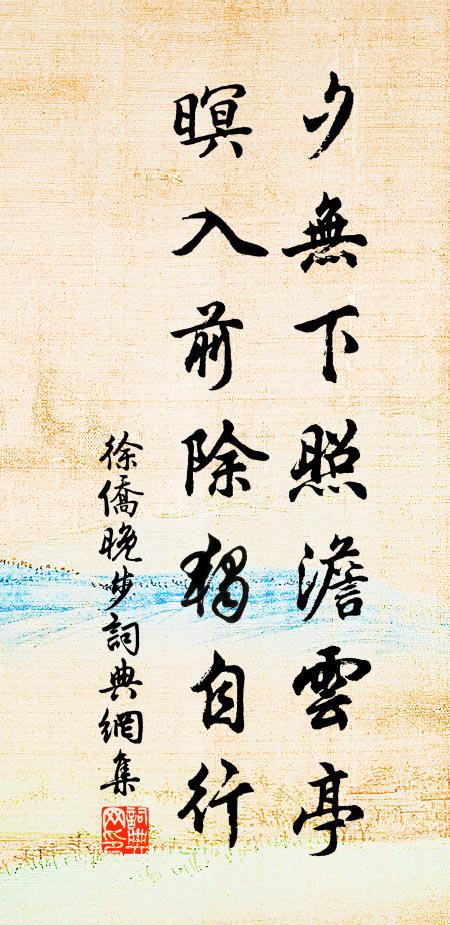 夕無下照澹雲亭
暝入前除獨自行
徐僑晚步詞典網集
詞典網印